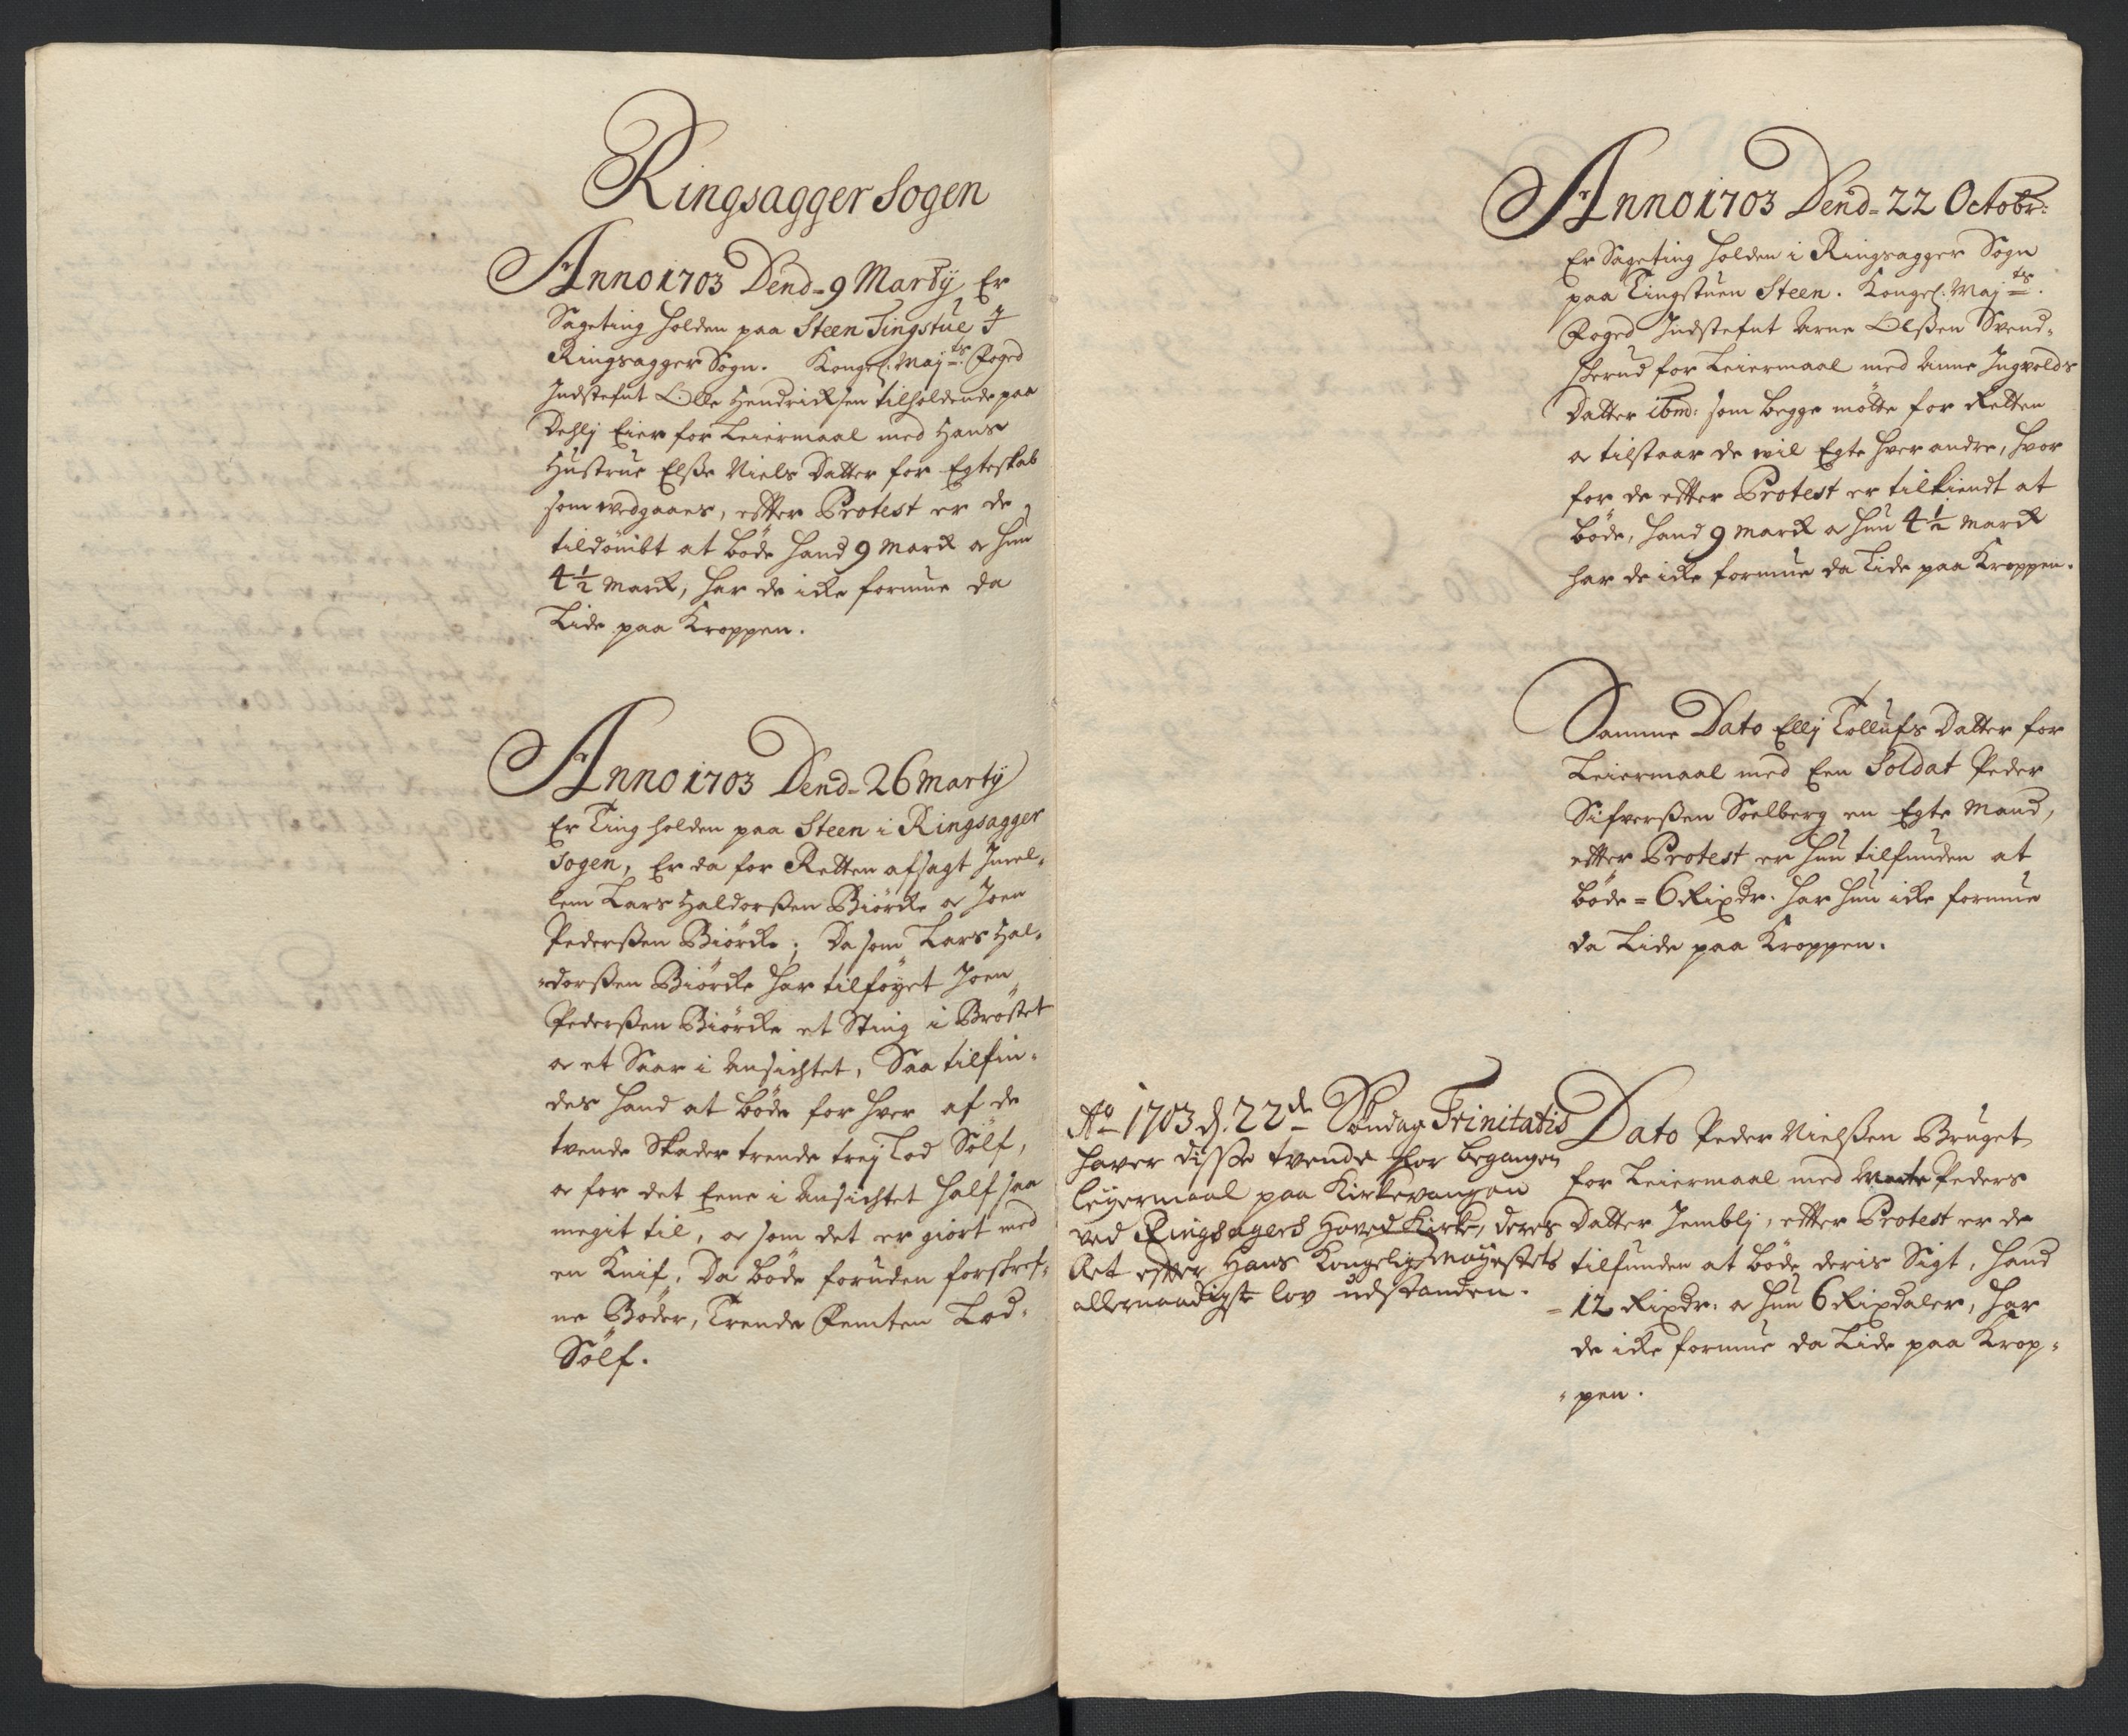 Ringsagger Sogen
Anno 1703 Dend 9 Marty Er
Sageting holden paa Steen Tingstue J
Ringsagger Sogn. Kongel. May.ts Foged
Indstefnt Olle Hendrichsen tilholdende paa
Dehlj Eier for Leiermaal med Hans
Hustrue Elsße Niels Datter for Egteskab
som vedgaaes, efter Protest er de
tildömbt at böde hand 9 Mark og hun
4½ Mark, har de icke formue da
Lide paa Kroppen.
Anno 1703 Dend 26 Marty
Er Ting holden paa Steen i Ringsagger
Sogen, Er da for Retten afsagt Imel-
lem Lars Haldorßen Biörcke og Joen
Pederßen Biörcke; Da som Lars Hal-
-dorßen Biörcke har tilföyet Joen
Pederßen Biörcke et Sting i Bröstet
og et Saar i Ansichtet, Saa tilfin-
des hand at böde for hver af de
tvende Skader trende trej Lod Sölf,
og for det Eene i Ansichtet half saa
megit til, og som det er giort med
en Knif, Da böde foruden forskref-
ne Böder, Trende Femten Lod-
Sölf.
Anno 1703 Dend 22 Octobr:
Er Sageting holden i Ringsagger Sogn
paa Tingstuen Steen. Kongel. Maj.ts
Foged Indstefnt Arne Olßen Svend-
sherud for Leiermaal med Anne Ingvolds
Datter ibm: som begge mötte for Retten
og tilstaar de wil Egte hver andre, hvor
for de efter Protest er tilkiendt at
böde, hand 9 Mark og hun 4½ Mark
har de icke formue da Lide paa Kroppen.
Samme Dato Ellj Tollufs Datter for
Leiermaal med Een Soldat Peder
Sifverßen Soelberg en Egte Mand,
efter Protest er hun tilfunden at
böde = 6 Rixdr. har hun icke formue
da Lide paa Kroppen.
Ao 1703 d. 22de Söndag Trinitatis
haver disse tvende for begangen
leyermaal paa Kirkevangen
ved Ringsagers Hoved Kirke, deres
Ret efter Hans Kongelig Mayestets
allernaadigste lov udstanden.
Dato Peder Nielßen Bruget
for Leiermaal med Marte Peders
Datter Jemblj, efter Protest er de
tilfunden at böde deris Sigt, hand
= 12 Rixdr: og hun 6 Rixdaler, har
de icke formue da Lide paa Krop-
-pen.